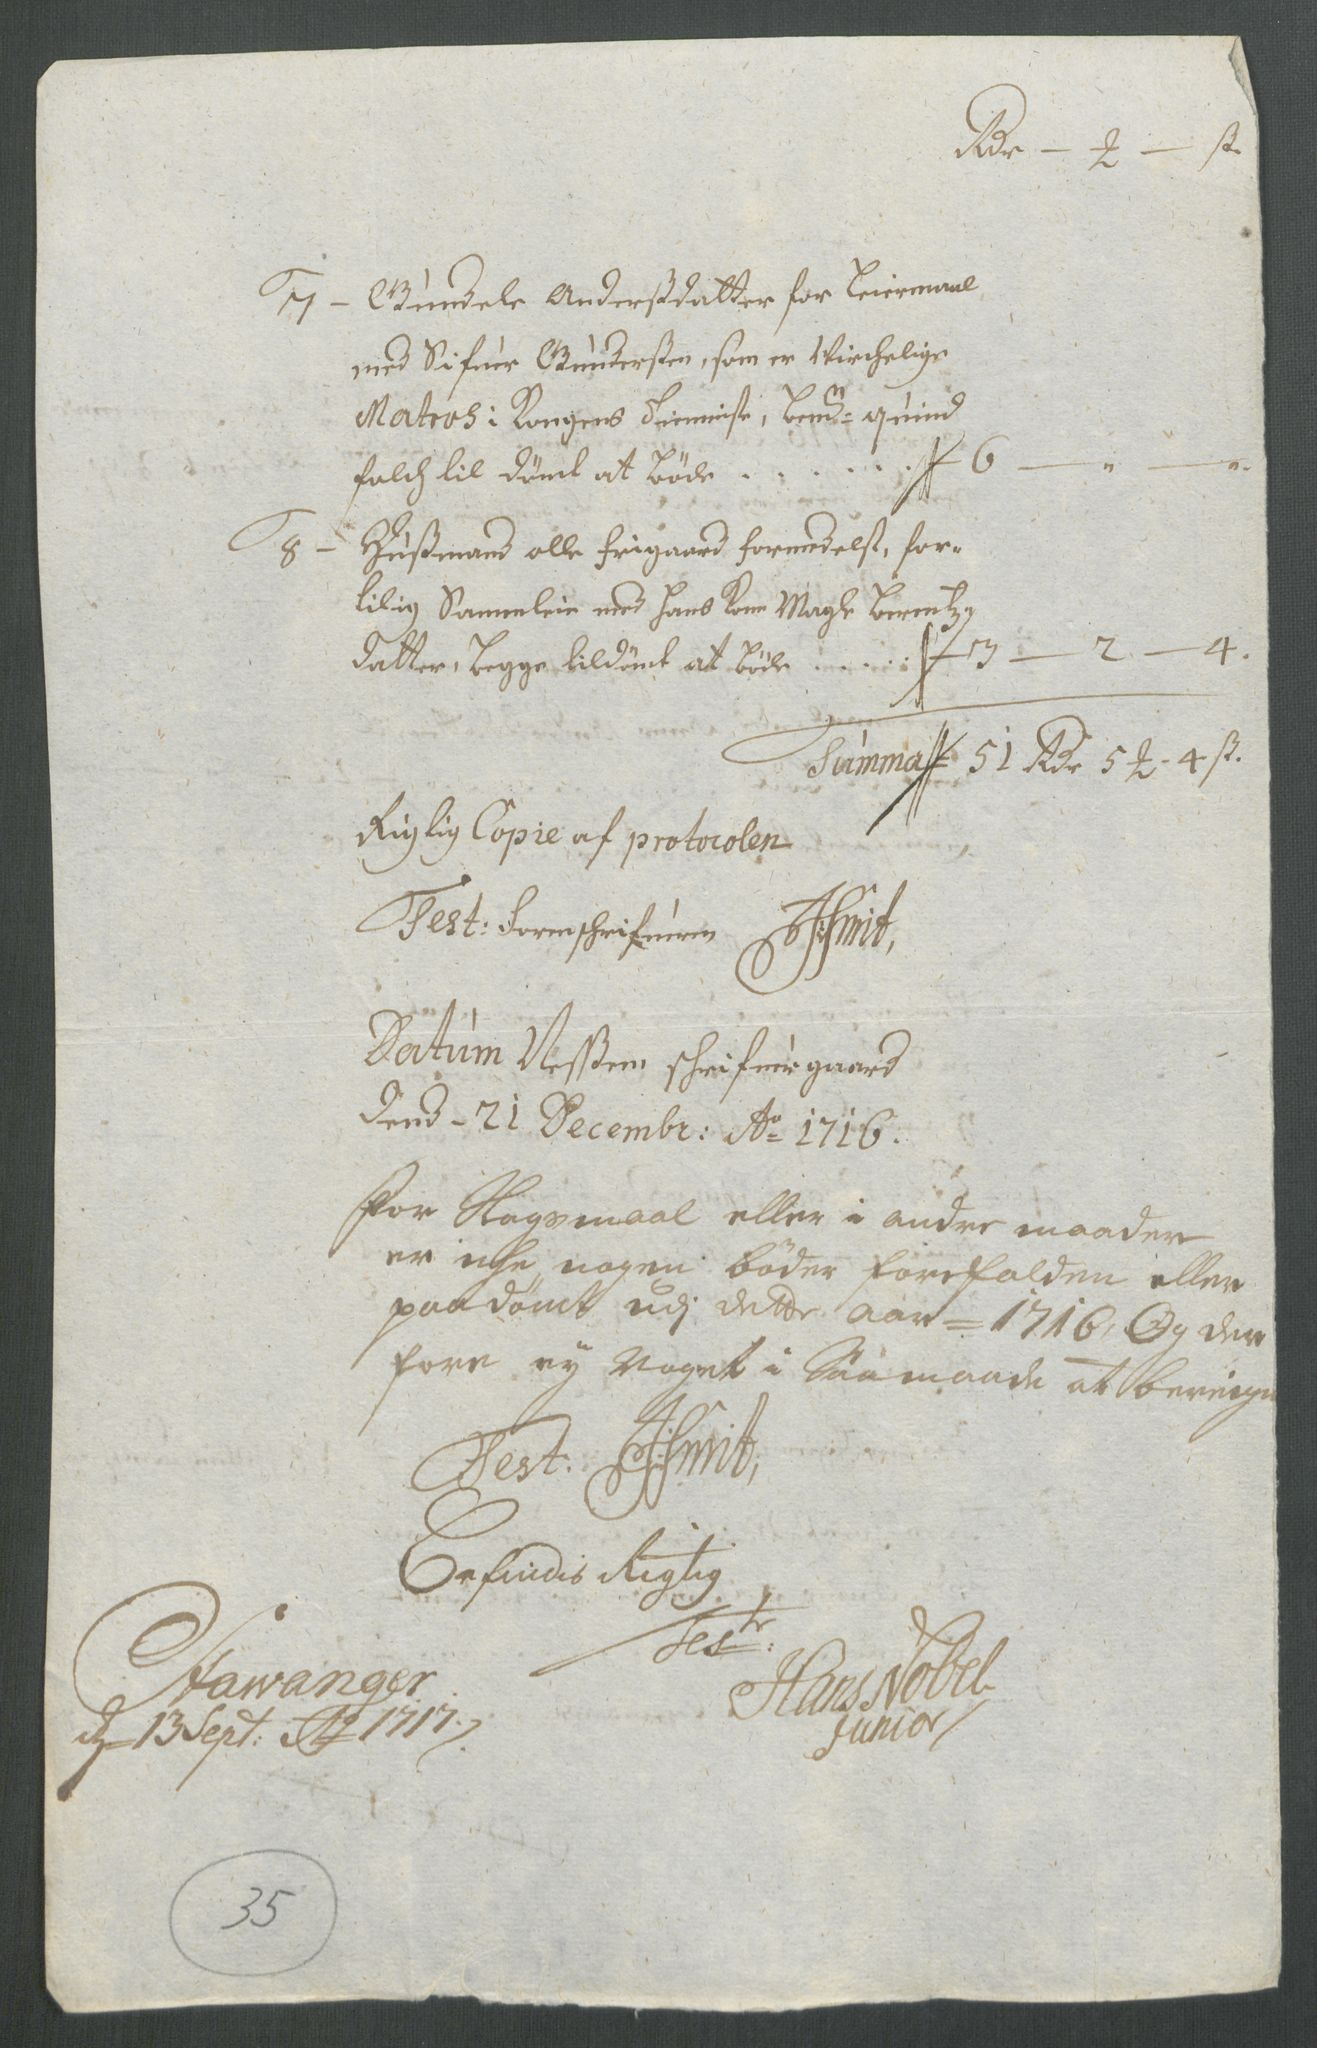 Rdr — ℔ — ß.
7 - Gundele Andersdatter for Leiermaal
med Sifuer Gunderßen, som er Virchelige
Matros i Kongens Tienniste, bemte quind
folch til dömt at böde . . . . . . 6 — " — ".
8 - Hußmand olle frigaard formedelst, for-
tilig Sammleie med hans Kone Magle Berentz
datter, begge tildömt at böde . . . . . 3 — 2 — 4.
Summa 51 Rdr 5 ℔ - 4 ß.
Rigtig Copie af protocolen
Test: Sorenschrifueren Schmit,
Datum Neßem schrifuergaard
dend - 21 Decembr: Ao 1716.
For Slagsmaal eller i andre maader
er iche nogen böder forefalden eller
paadömt udj dette aar = 1716, Og der
fore ey noget i Saa maade at beregne
Test: Schmit,
Befindis Rigtig
Test:
Hans Nobel
Junior
Stawanger
d 13 Sept: Ao 1717.
35